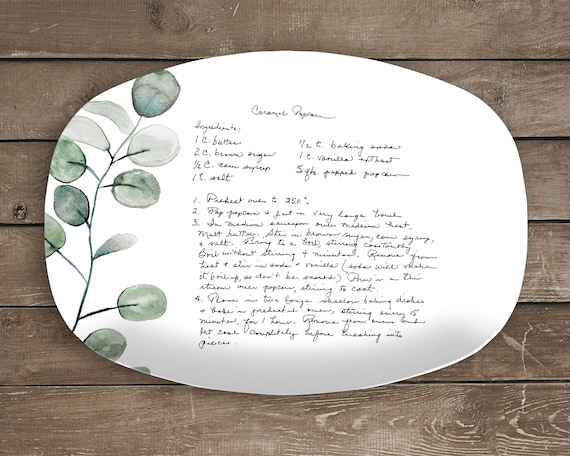 Caramel Popcorn
Ingredients:
1 C. butter
2 C. brown sugar
1/2 C. corn syrup
1 t. salt
1/2 t. baking soda
1 t. vanilla extract
5 qts. popped popcorn
1. Preheat oven to 250°.
2. Pop popcorn & put in very large bowl
3. In medium saucepan over medium heat,
melt butter. Stir in brown sugar, corn syrup,
& salt. Bring to a boil, stirring constantly
Boil without stirring 4 minutes. Remove from
heat & stir in soda & vanilla (soda will make
it boil up, so don't be scared) Pour in a thin
stream over popcorn, stirring to coat.
4. Place in two large shallow baking dishes
& bake in preheated oven, stirring every 15
minutes, for 1 hour. Remove from oven and
let cool completely before breaking into
pieces.